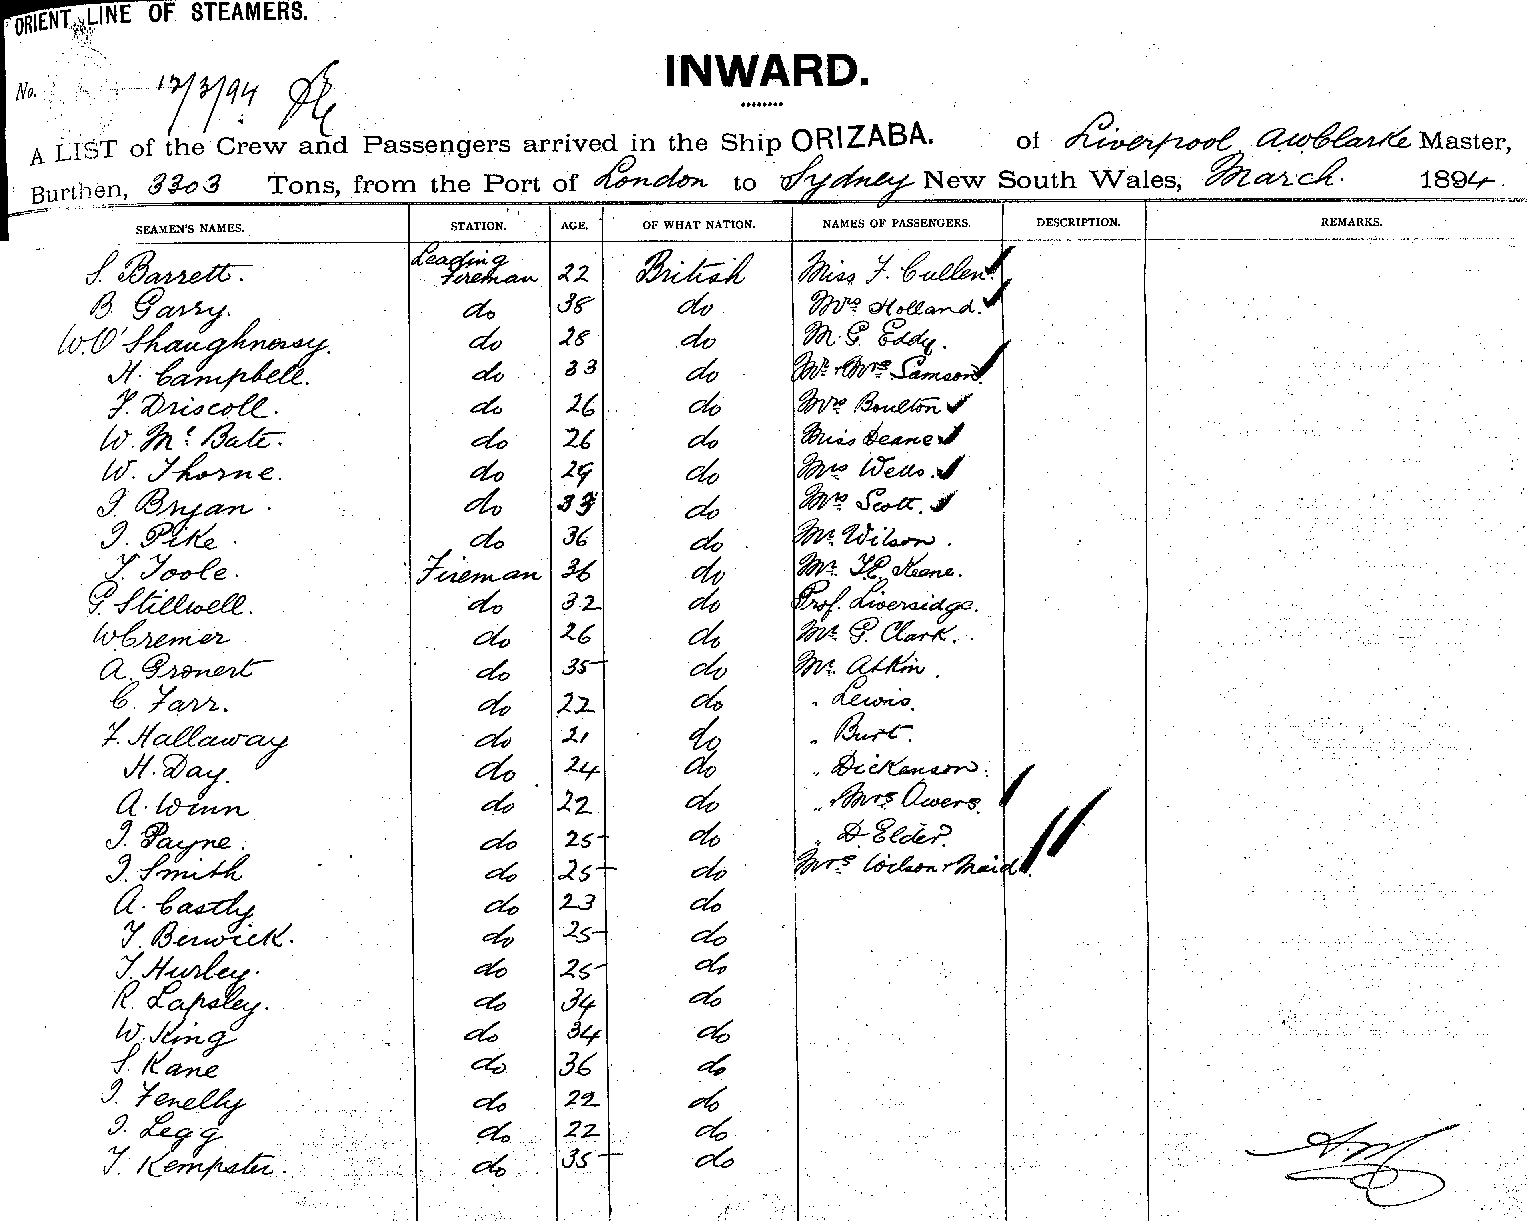 ORIENT LINE OF STEAMERS.
INWARD.
No. 12/3/94
A LIST of the Crew and Passengers arrived in the Ship ORIZABA. of Liverpool AWClarke Master,
Burthen, 3303 Tons, from the Port of London to Sydney New South Wales, March. 1894.
SEAMEN'S NAMES. STATION. AGE. OF WHAT NATION. NAMES OF PASSENGERS. DESCRIPTION. REMARKS.
S. Barrett. Leading Fireman 22 British Miss F. Cullen.
B. Garry. do 38 do Mrs Holland.
W. O'Shaughnessy. do 28 do M. G. Eddy.
H. Campbell. do 33 do Mr + Mrs Samson.
F. Driscoll. do 26 do Mrs Boulton
W. Mc Bate. do 26 do Miss Deane
W. Thorne. do 29 do Mrs Wells.
J. Bryan. do 33 do Mrs Scott.
J. Pike. do 36 do Mr. Wilson.
T. Toole. Fireman 36 do Mr. Keane.
G. Stillwell. do 32 do Prof. Liversidge.
W Cremer do 26 do Mr. G. Clark.
A. Gronert do 35 do Mr. Atkin.
C. Farr. do 22 do " Lewis.
F. Hallaway do 21 do " Burt.
H. Day. do 24 do " Dickenson.
A. Winn do 22 do " + Mrs Owers.
J. Payne. do 25 do " D. Elder.
J. Smith do 25 do Mrs Wilson + Maid.
A. Castly do 23 do
T. Berwick. do 25 do
T. Hurley. do 25 do
R. Lapsley. do 34 do
W. King do 34 do
S. Kane do 36 do
J. Fenelly do 22 do
J. Legg do 22 do
T. Kempster. do 35 do